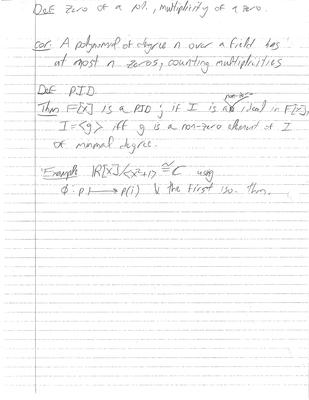 Def Zero of a pol., multiplicity of a zero.
Cor: A polynomial of degree n over a field has
at most n zeros, counting multiplicities
Def P.I.D.
Thm F[x] is a PID; if I is a non-zero ideal in F[x],
I=<g> iff g is a non-zero element of I
of minimal degree.
Example ℝ[x]/<x²+1> ≅ ℂ using
φ: p ↦ p(i) & the first iso. thm.